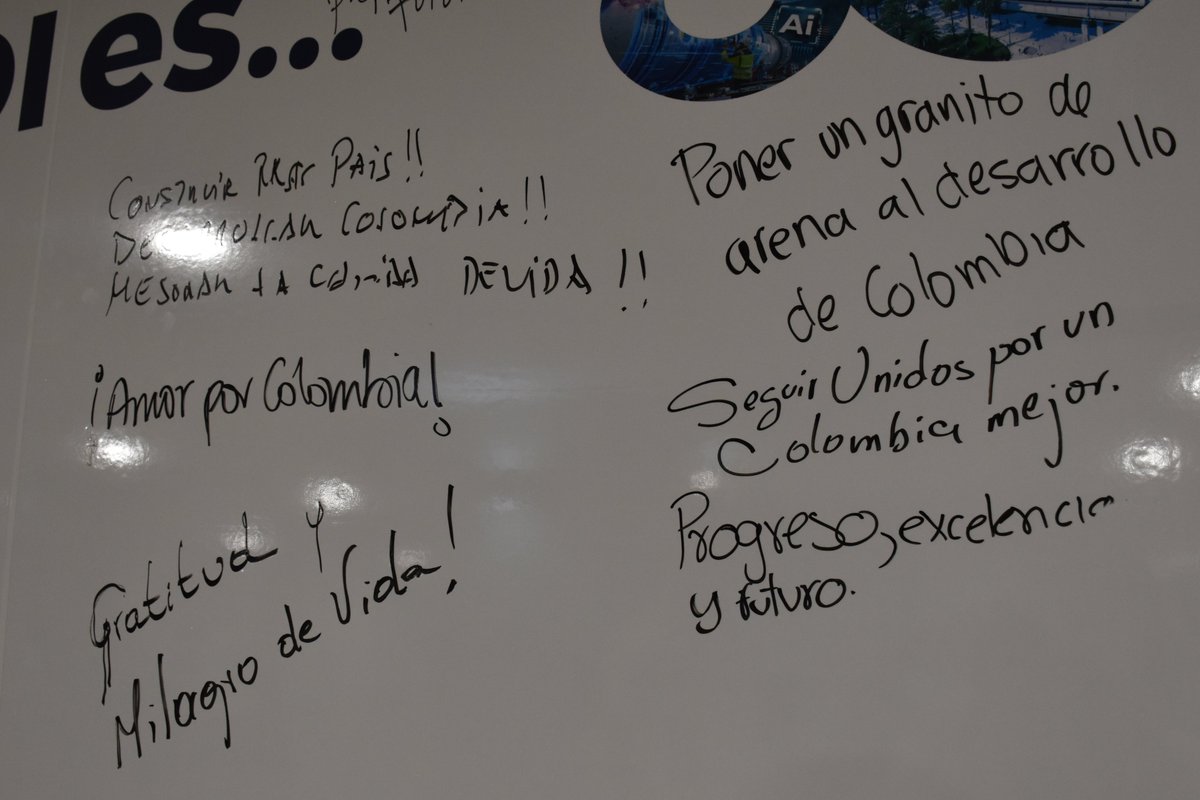 es...
Ai
CONSTRUIR PAIS!!
COLOMBIA!!
MEJORAR LA DE VIDA!!
¡Amor por Colombia!
Gratitud y
Milagro de Vida!
Poner un granito de
arena al desarrollo
de Colombia
Seguir Unidos por un
Colombia mejor.
Progreso, excelencia
y futuro.